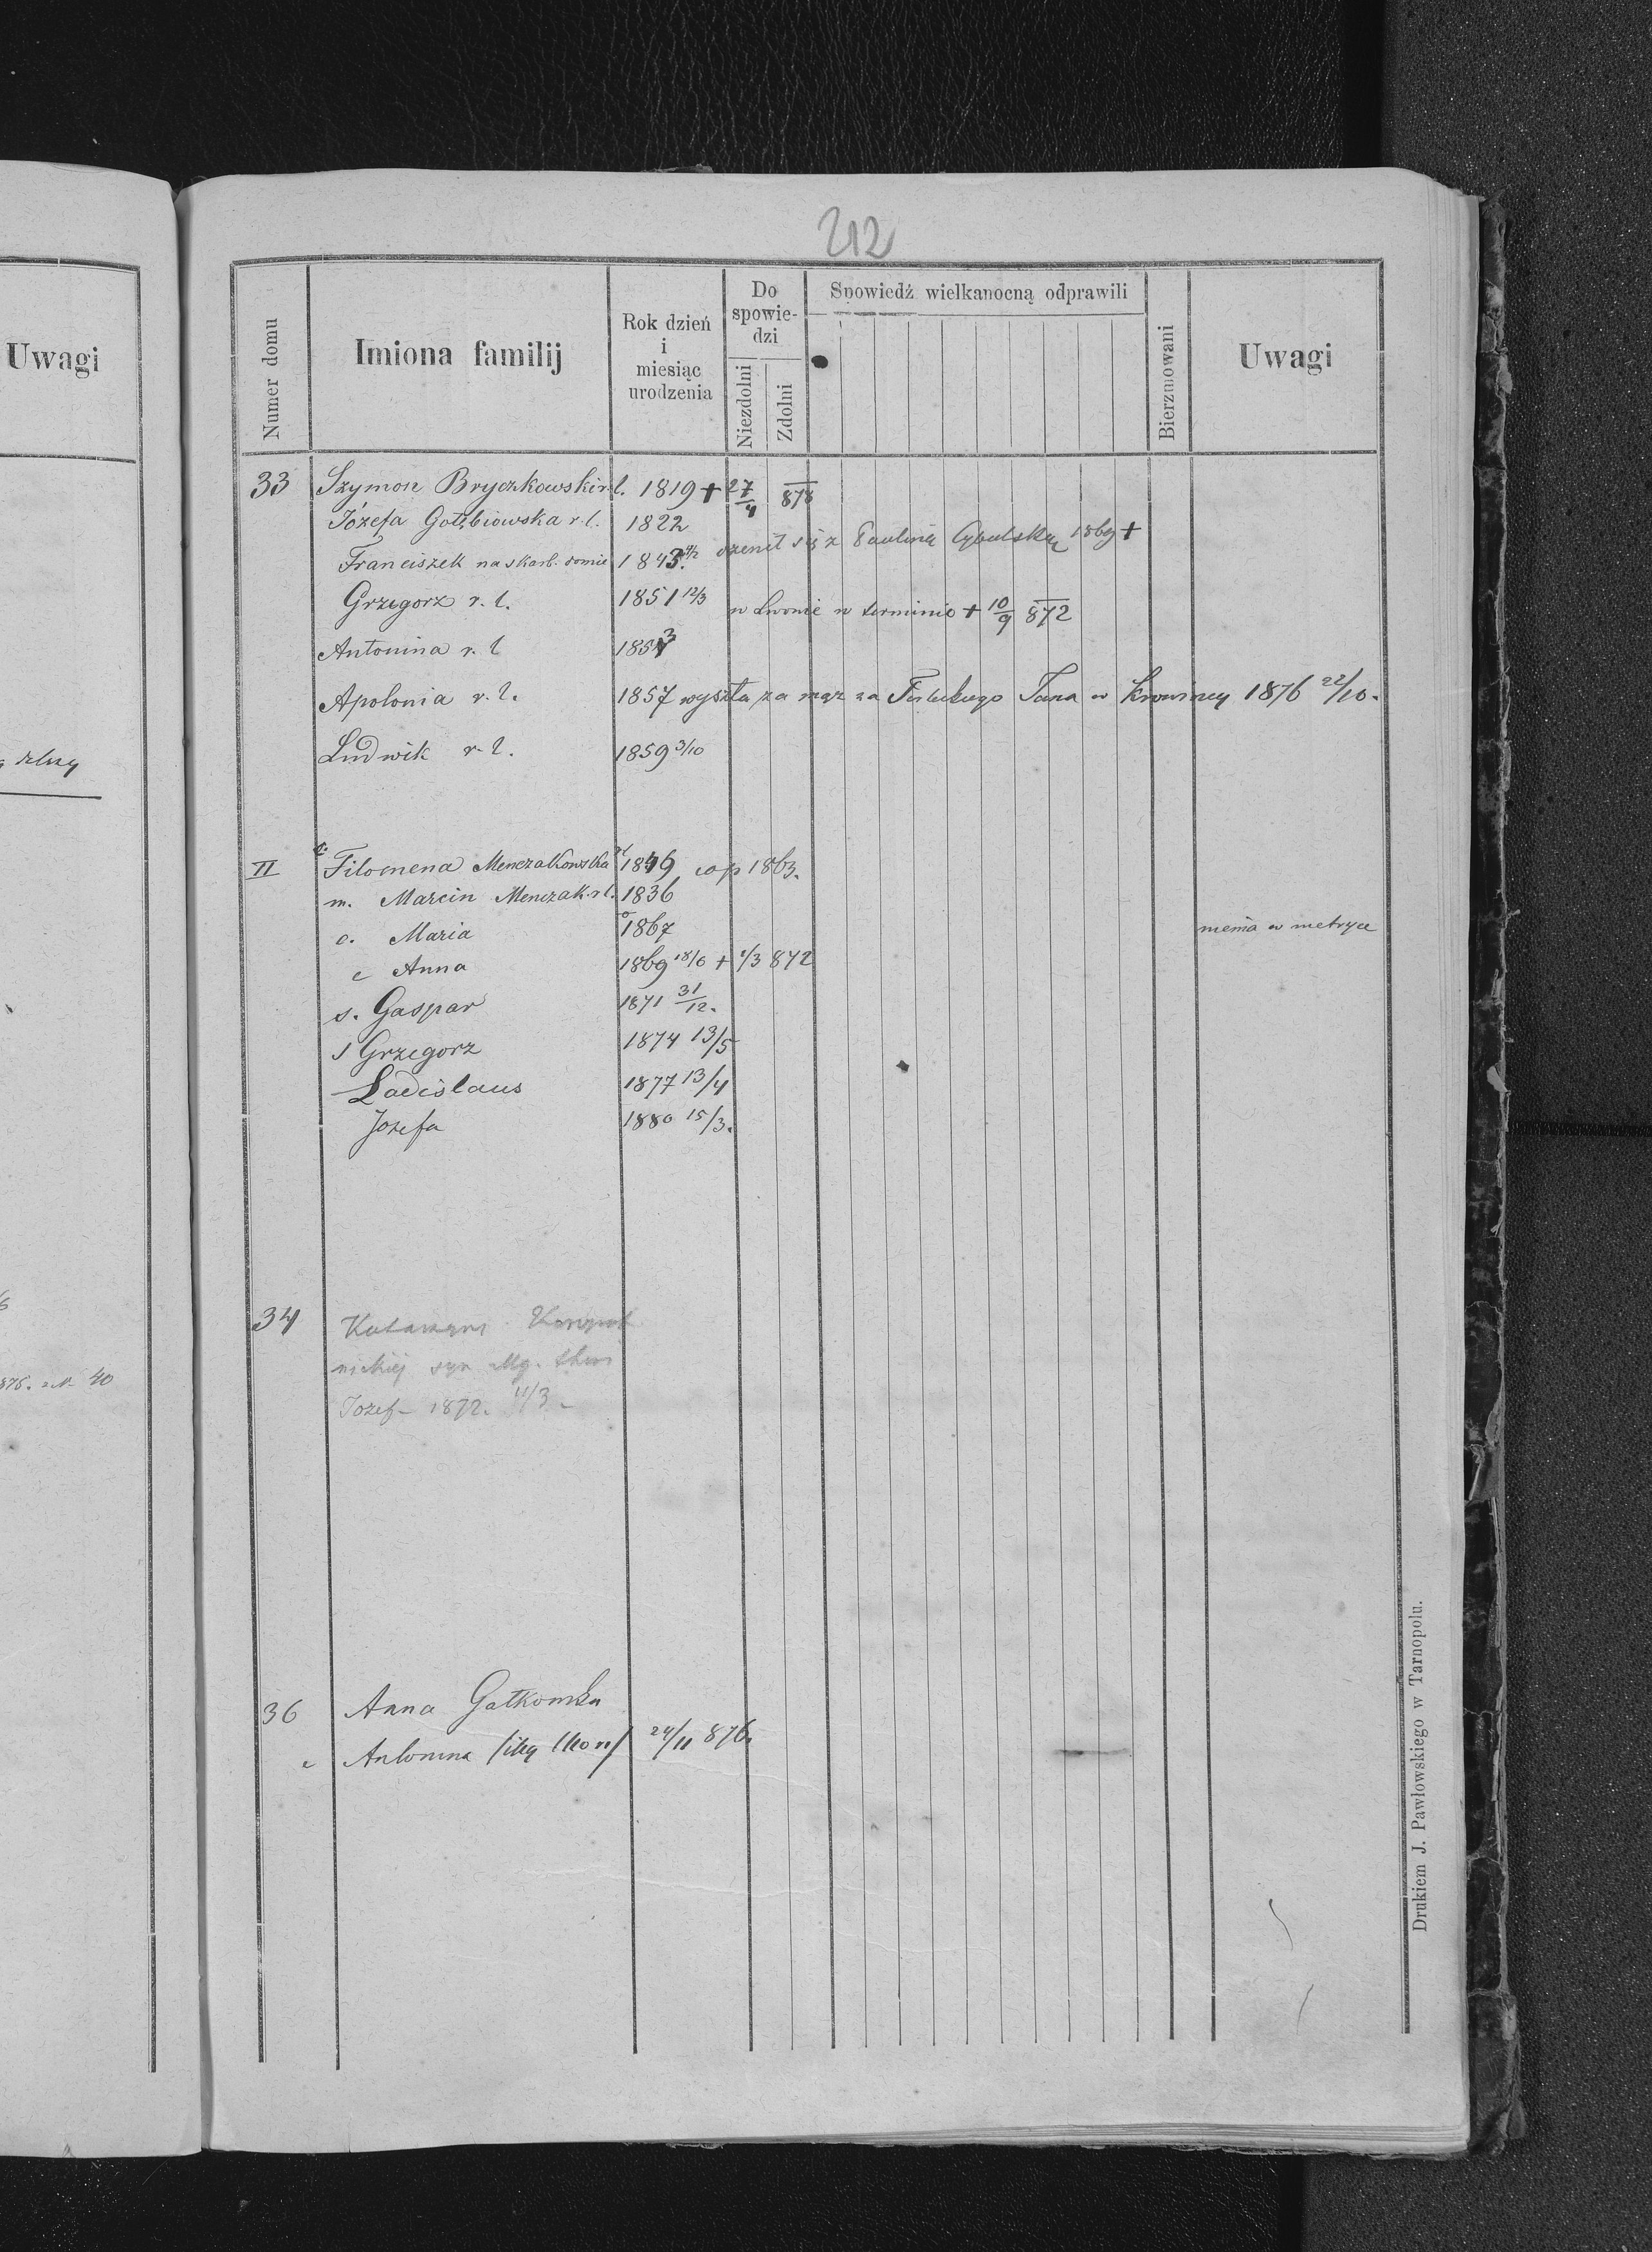 212
Uwagi
Numer domu
Imiona familij
Rok dzień i miesiąc urodzenia
Do spowiedzi
Niezdolni
Zdolni
Spowiedź wielkanocną odprawili
Bierzmowani
Uwagi
33 Szymon Bryczkowski r. l. 1819 + 27/4 878
Józefa Gołębiowska r. l. 1822
Franciszek na skarb. domie 1843. ożenił się z Pauliną Cybulską 1869 +
Grzegorz r. l. 1851 12/3 w Lwowie w terminie + 10/9 872
Antonina r. l 1853
Apolonia r. l. 1857 wyszła za mąż za Jana w 1876 22/10.
Ludwik r. l. 1859 3/10
II Filomena Menczakowska 1846 cop 1863.
m. Marcin Menczak. r l. 1836
c. Maria 1867 niema w metryce
c Anna 1869 18/6 + 1/3 872
s. Gaspar 1871 31/12.
s Grzegorz 1874 13/5
Ladislaus 1877 13/4
Jozefa 1880 15/3.
34
syn
Jozef - 1872. 11/3 -
876. 40
36 Anna
c Antonina 24/11 876.
Drukiem J. Pawłowskiego w Tarnopolu.